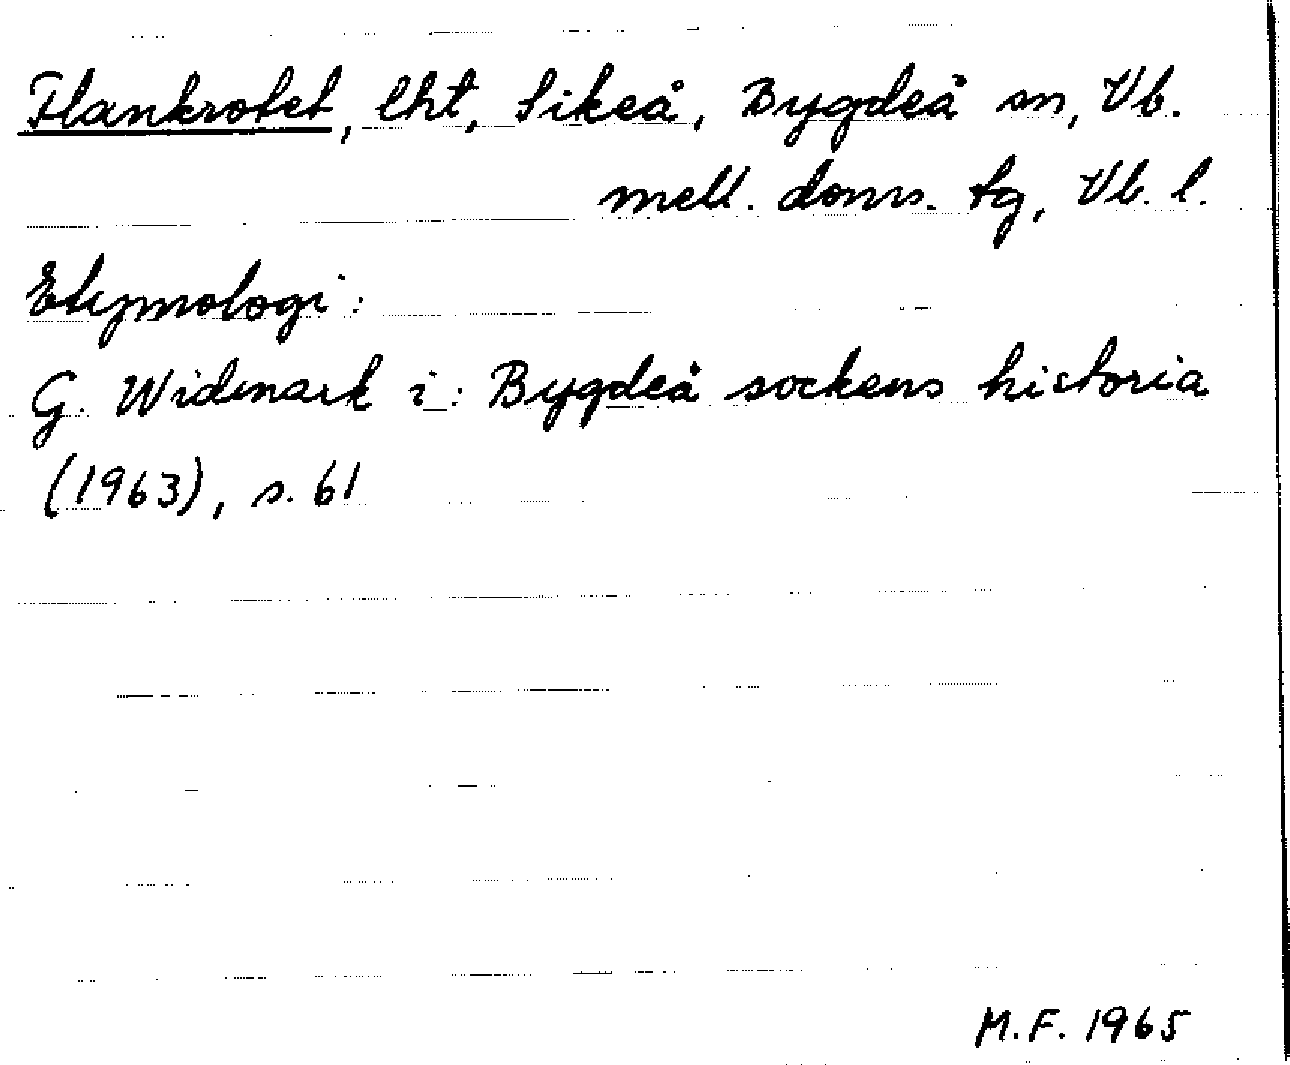 Flankrotet, lht, Sikeå, Bygdeå sn, Vb.
mell. doms. tg, Vb. l.
Etymologi:
G. Widmark i: Bygdeå sockens historia
(1963), s. 61
M.F. 1965